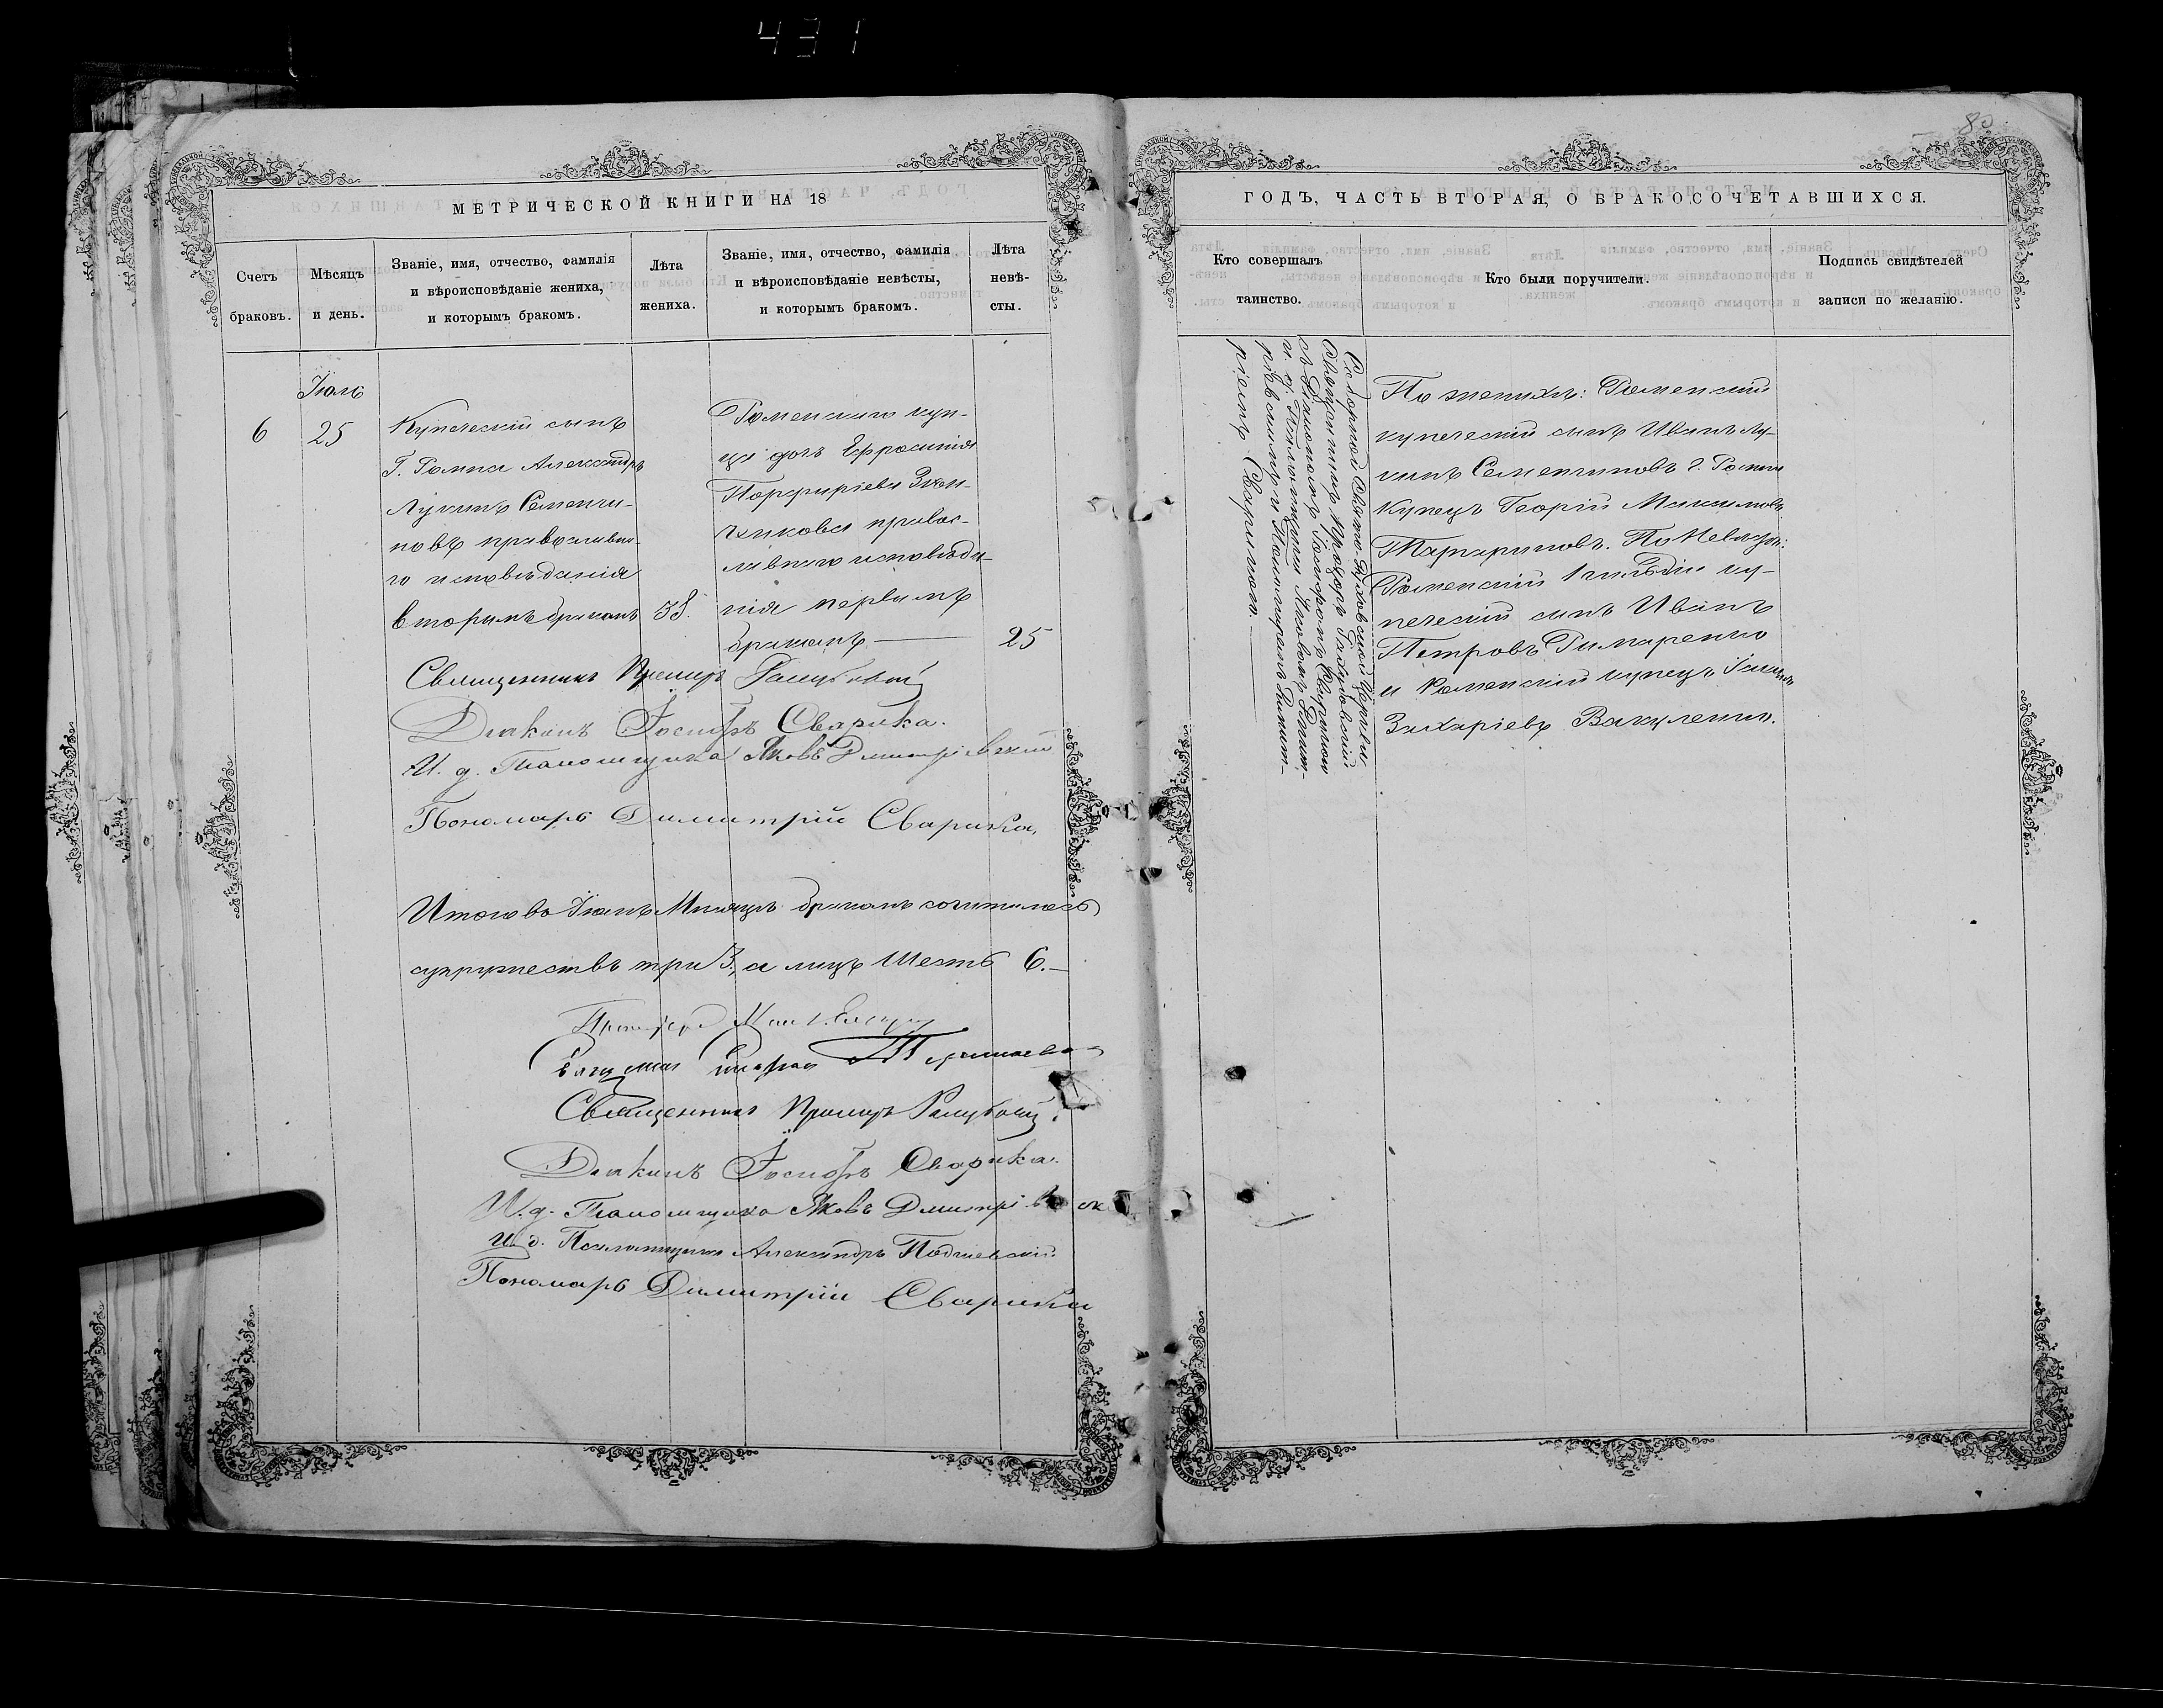 431
80
МЕТРИЧЕСКОЙ КНИГИ НА 18
Счетъ
браковъ.
Мѣсяцъ
и день.
Званіе, имя, отчество, фамилія
и вѣроисповѣданіе жениха,
и которымъ бракомъ.
Лѣта
жениха.
Званіе, имя, отчество, фамилія
и вѣроисповѣданіе невѣсты,
и которымъ бракомъ.
Лѣта
невѣ-
сты.
6
Іюль
25
Купеческій сынъ
Г. Ромна Александръ
Лукинъ Семенчи-
новъ православна-
го исповѣданія
вторымъ бракомъ
38.
Роменскаго куп-
ца дочь Ефросинія
Порфиріева
православ-
наго исповѣда-
нія первымъ
бракомъ
25
Священникъ
Діаконъ Іосифъ Сварика.
И. д. Псаломщика Яковъ Дмитріевскій
Пономарь Димитрій Сварика,
Итого въ Іюлѣ Мѣсяцѣ бракомъ сочеталось
супружествъ три 3, а лицъ шесть 6.
Священникъ
Діаконъ Іосифъ Сварика.
И. д. Псаломщика Яковъ
И. д. Псаломщика Александръ
Пономарь Димитрій Сварика
ГОДЪ, ЧАСТЬ ВТОРАЯ, О БРАКОСОЧЕТАВШИХСЯ.
Кто совершалъ
таинство.
Кто были поручители.
Подпись свидѣтелей
записи по желанію.
Соборной Свято-Духовской Церкви
Священникъ
съ Діакономъ Іосифомъ Сварикою
и. д. Псаломщика Яковомъ Дмит-
ріевскимъ и Пономаремъ Димит-
ріемъ Сварикою.
По женихѣ: Роменскій
купеческій сынъ Иванъ Лу-
кинъ Семенчиновъ г. Ромна
купецъ Георгій Максимовъ
По Невѣстѣ:
Роменскій 1 гильдіи ку-
печескій сынъ Иванъ
Петровъ Римаренко
и Роменскій купецъ
Захаріевъ Вакуленко.